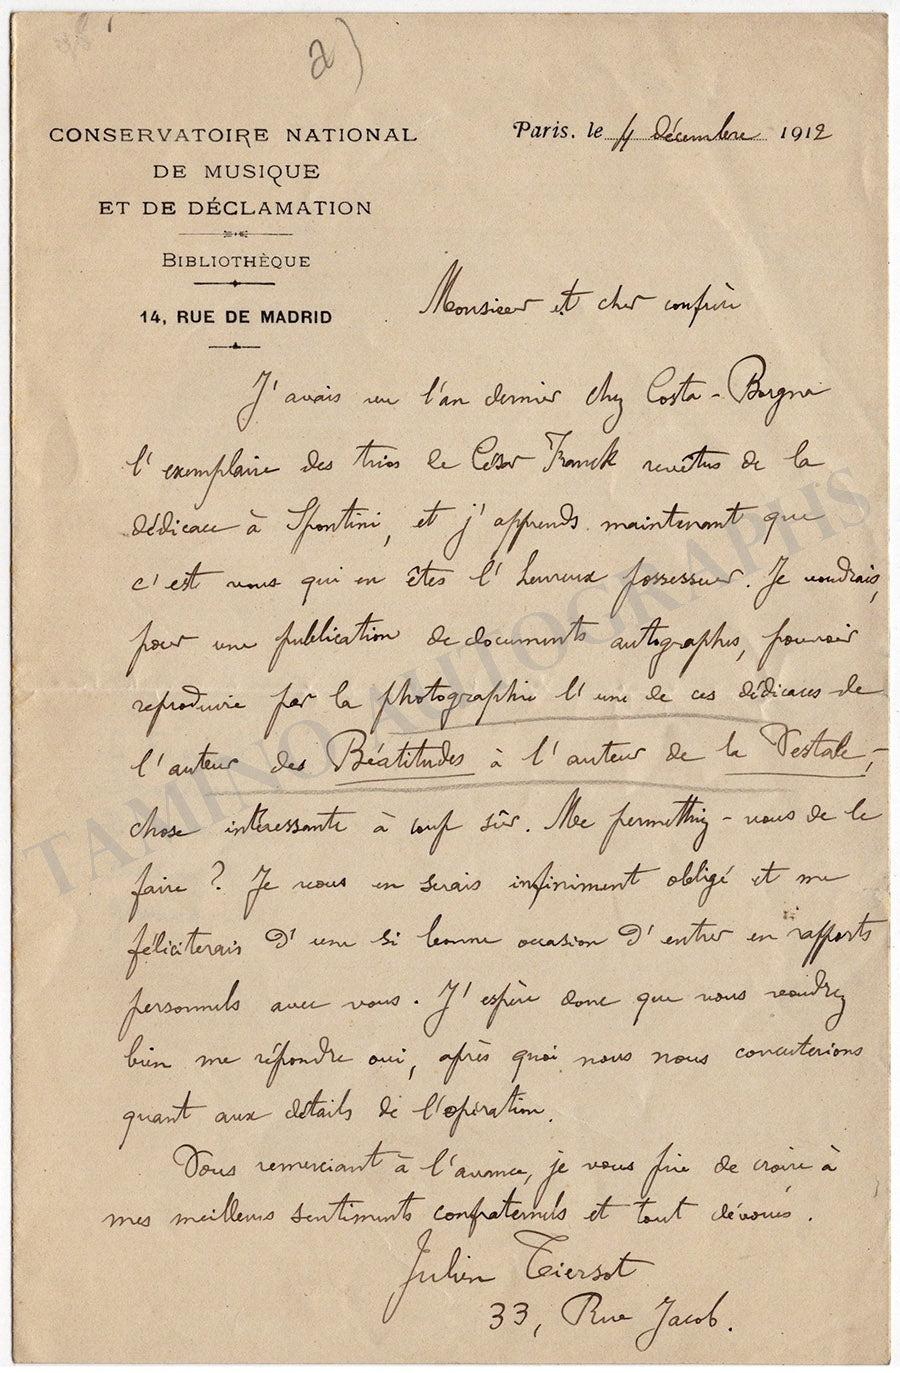 a)
CONSERVATOIRE NATIONAL
DE MUSIQUE
ET DE DÉCLAMATION
BIBLIOTHÈQUE
14, RUE DE MADRID
Paris, le 4 décembre 1912
Monsieur et cher confrère
J'avais vu l'an dernier chez Costa-
l'exemplaire des trios de César Franck revêtus de la
dédicace à Spontini, et j'apprends maintenant que
c'est vous qui en êtes l'heureux possesseur. Je voudrais,
pour une publication de documents autographes, pouvoir
reproduire par la photographie l'une de ces dédicaces de
l'auteur des Béatitudes à l'auteur de la Vestale, -
chose intéressante à coup sûr. Me permettez-vous de le
faire ? Je vous en serais infiniment obligé et me
féliciterais d'une si bonne occasion d'entrer en rapports
personnels avec vous. J'espère donc que vous voudrez
bien me répondre oui, après quoi nous nous concerterions
quant aux détails de l'opération.
Vous remerciant à l'avance, je vous prie de croire à
mes meilleurs sentiments confraternels et tout dévoués.
Julien Tiersot
33, Rue Jacob.
TAMINO AUTOGRAPHS